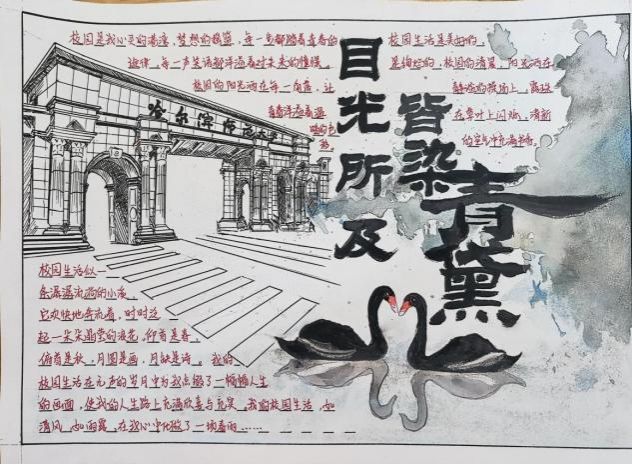 校园是我心灵的港湾，梦想的摇篮，每一步都踏着青春的
旋律，每一声笑语都洋溢着对未来的憧憬，
校园的阳光洒在每一角落，让
青春洋溢着温
暖的气
息。
校园生活是美好的，
是绚烂的，校园的清晨，阳光洒在
静谧的操场上，露珠
在草叶上闪烁，清新
的空气中充满书香。
目光所及
皆染
青黛
哈尔滨师范大学
校园生活似一
条潺潺流淌的小溪，
它欢快地奔流着，时时泛
起一朵朵晶莹的浪花，仰首是春，
俯首是秋，月圆是画，月缺是诗。我的
校园生活在无声的岁月中为我点缀了一幅幅人生
的画面，使我的人生路上充满欣喜与充实，我的校园生活，如
清风，如雨露，在我心中化做了一场春雨……